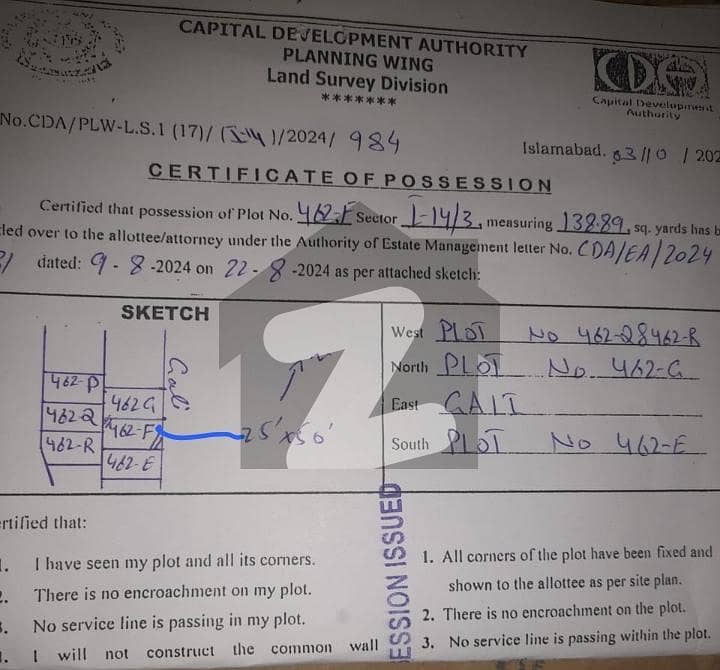 CAPITAL DEVELOPMENT AUTHORITY
PLANNING WING
Land Survey Division
*******
CDA
Capital Development
Authority
No.CDA/PLW-L.S.1 (17)/ (I-14)/2024/ 984
Islamabad. 03/10 / 202
CERTIFICATE OF POSSESSION
Certified that possession of Plot No. 462-F Sector I-14/3, measuring 138.89 sq. yards has b
led over to the allottee/attorney under the Authority of Estate Management letter No. CDA/EA/2024
dated: 9-8-2024 on 22-8-2024 as per attached sketch:
SKETCH
Gali
462-P
462G
462Q
462-F
25'x50'
462-R
462-E
West PLOT No 462-Q&462-R
North PLOT No. 462-G
East GALI
South PLOT No 462-E
ertified that:
1. I have seen my plot and all its corners.
2. There is no encroachment on my plot.
3. No service line is passing in my plot.
I will not construct the common wall
ESSION ISSUED
1. All corners of the plot have been fixed and
shown to the allottee as per site plan.
2. There is no encroachment on the plot.
3. No service line is passing within the plot.